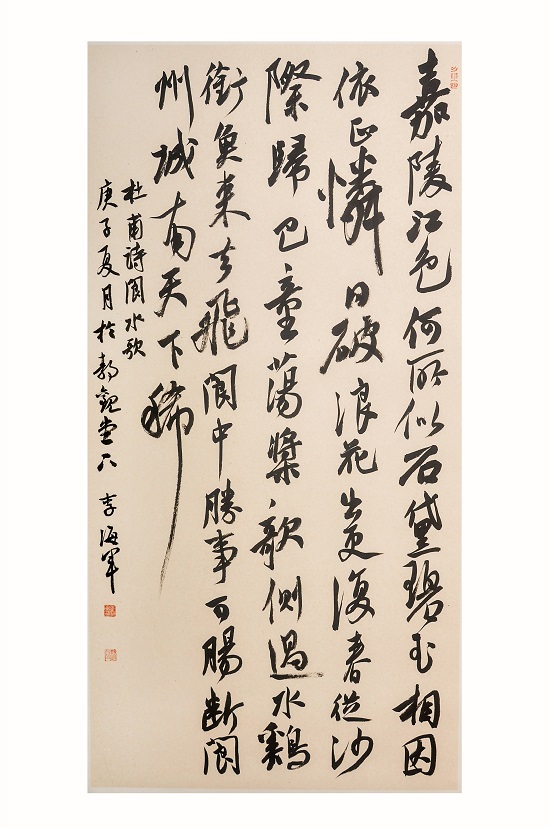 嘉陵江色何所似石黛碧玉相因
依正憐日破浪花出更復春從沙
際歸巴童蕩槳欹側過水鷄
銜魚來去飛閬中勝事可腸斷閬
州城南天下稀
杜甫詩閬水歌
庚子夏月於觀堂 李海軍